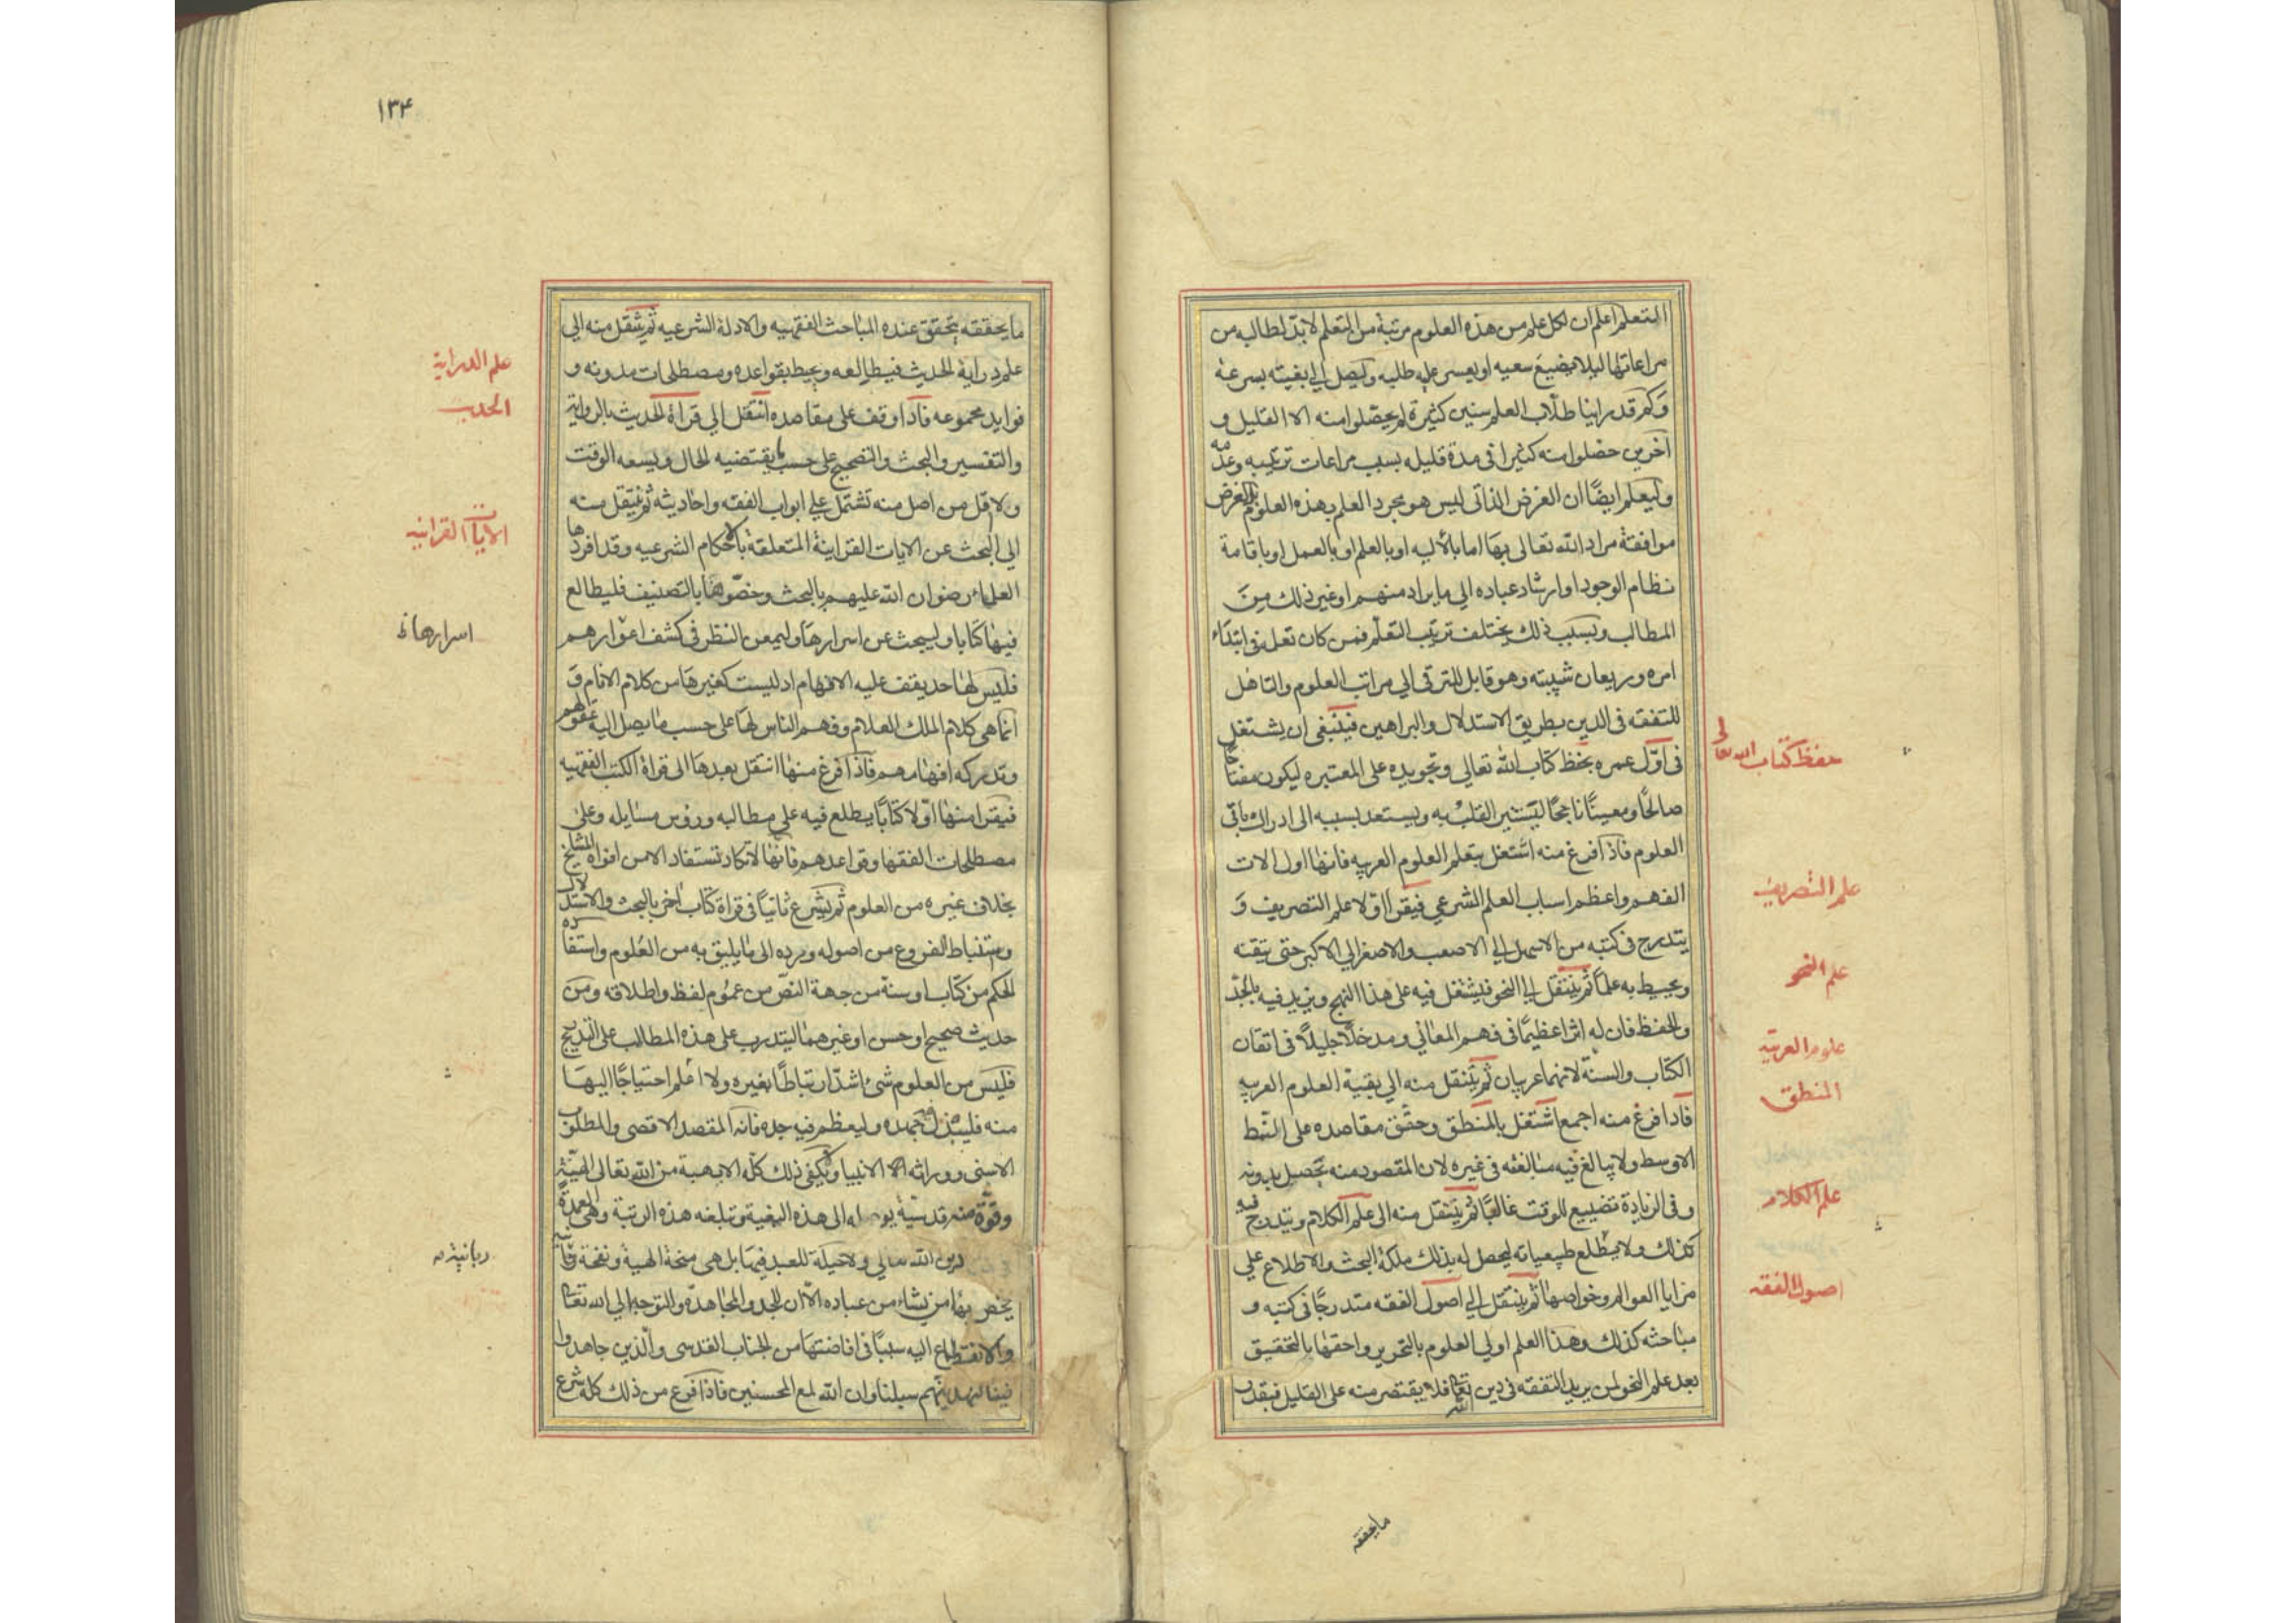 المتعلم اعلم ان لكل علم من هذه العلوم مرتبة من التعلم لا بد لطالبه من
مراعاتها ليلا يضيع سعيه او يعسر عليه طلبه وليصل الي بغيته بسرعة
وكم قد راينا طلاب العلم سنين كثيرة لم يحصلوا منه الا القليل و
آخرين حصلوا منه كثيرا في مدة قليله بسبب مراعات ترتيبه وعدمه
وليعلم ايضًا ان الغرض الذاتي ليس هو مجرد العلم بهذه العلوم بل الغرض
موافقة مراد الله تعالى بها اما بالآليه او بالعلم او بالعمل او باقامة
نظام الوجود او ارشاد عباده الي ما يراد منهم او غير ذلك من
المطالب وبسبب ذلك يختلف ترتيب التعلم فمن كان تعلمه في ابتداء
امره وريعان شبيبته وهو قابل للترقي الي مراتب العلوم والتاهل
للتفقه في الدين بطريق الاستدلال والبراهين فينبغي ان يشتغل
في اول عمره بحفظ كتاب الله تعالي وتجويده على المعتبره ليكون مفتاحًا
صالحًا ومعينًا ناجحًا ليستنير القلب به ويستعد بسببه الى ادراك باقي
العلوم فاذا فرغ منه اشتغل بتعلم العلوم العربيه فانها اول الات
الفهم واعظم اسباب العلم الشرعي فيقرا اولا علم التصريف و
يتدرج في كتبه من الاسهل الي الاصعب والاصغر الي الاكبر حتى يتقنه
ويحيط به علمًا ثم ينتقل الي النحو فيشتغل فيه على هذا النهج ويزيد فيه بالجد
والحفظ فان له اثرا عظيمًا في فهم المعاني ومدخلًا جليلًا في اتقان
الكتاب والسنة لانهما عربيان ثم ينتقل منه الي بقية العلوم العربيه
فاذا فرغ منه اجمع اشتغل بالمنطق وحقق مقاصده على النمط
الاوسط ولا يبالغ فيه مبالغته في غيره لان المقصود منه يحصل بدونه
وفي الزيادة تضييع للوقت غالبًا ثم ينتقل منه الى علم الكلام ويتدرج فيه
كذلك ولا يطلع طبيعياته ليحصل له بذلك ملكة البحث والاطلاع علي
مزايا العوالم وخواصها ثم ينتقل الي اصول الفقه متدرجًا في كتبه و
مباحثه كذلك وهذا العلم اولي العلوم بالتحرير واحقها بالتحقيق
بعد علم النحو لمن يريد التفقه في دين الله تعالى فلا يقتصر منه على القليل فبقدر
حفظ كتاب الله تعالى
علم التصريف
علم النحو
علوم العربية
المنطق
علم الكلام
اصول الفقه
ما يحققه
١٣٤
ما يحققه يتحقق عنده المباحث الفقهيه والادلة الشرعيه ثم ينتقل منه الي
علم دراية الحديث فيطالعه ويحيط بقواعده ومصطلحات مدونه و
فوايد مجموعه فاذا وقف على مقاصده انتقل الي قراة الحديث بالرواية
والتفسير والبحث والتصحيح على حسب ما يقتضيه الحال ويسعه الوقت
ولا اقل من اصل منه تشتمل علي ابواب الفقه واحاديثه ثم ينتقل منه
الي البحث عن الايات القرانية المتعلقة بالاحكام الشرعيه وقد افردها
العلماء رضوان الله عليهم بالبحث وخصوها بالتصنيف فليطالع
فيها كتابا وليبحث عن اسرارها وليمعن النظر في كشف اغوارهم
فليس لها حد يقف عليه الافهام اذ ليست كغيرها من كلام الانام و
انما هي كلام الملك العلام وفهم الناس لها على حسب ما يصل اليه عقولهم
وتدركه افهامهم فاذا فرغ منها انتقل بعدها الى قراة الكتب الفقهيه
فيقرا منها اولا كتابًا يطلع فيه علي مطالبه وروس مسايله وعلى
مصطلحات الفقها وقواعدهم فانها لا تكاد تستفاد الا من افواه المشايخ
بخلاف غيره من العلوم ثم يشرع ثانيًا في قراة كتاب اخر بالبحث والاستدلال
واستنباط الفروع من اصوله ورده الى ما يليق به من العلوم واستفاده
الحكم من كتاب او سنة من جهة النص من عموم لفظ واطلاقه ومن
حديث صحيح او حسن او غيرهما ليتدرب على هذه المطالب على التدريج
فليس من العلوم شئ اشد ارتباطًا بغيره ولا اعلم احتياجًا اليها
منه فليبذل فيه جهده وليعظم فيه جده فانه المقصد الاقصى والمطلوب
الاسنى ووراثة الانبيا ولا يكفي ذلك كله الا بهبة من الله تعالى الهية
وقوة منه قدسية يوصله الى هذه البغية وتبلغه هذه الرتبة وهي العمدة
دين الله تعالي ولا حيلة للعبد فيها بل هي منحة الهية ونفحة ربانية
يخص بها من يشاء من عباده الا ان للجد والمجاهدة والتوجه الي الله تعالى
والانقطاع اليه سببًا في افاضتها من الجناب القدسي والذين جاهدوا
فينا لنهدينهم سبلنا وان الله لمع المحسنين فاذا فرغ من ذلك كله شرع
علم الدراية
الحديث
الايات القرانيه
اسرارها
ربانية